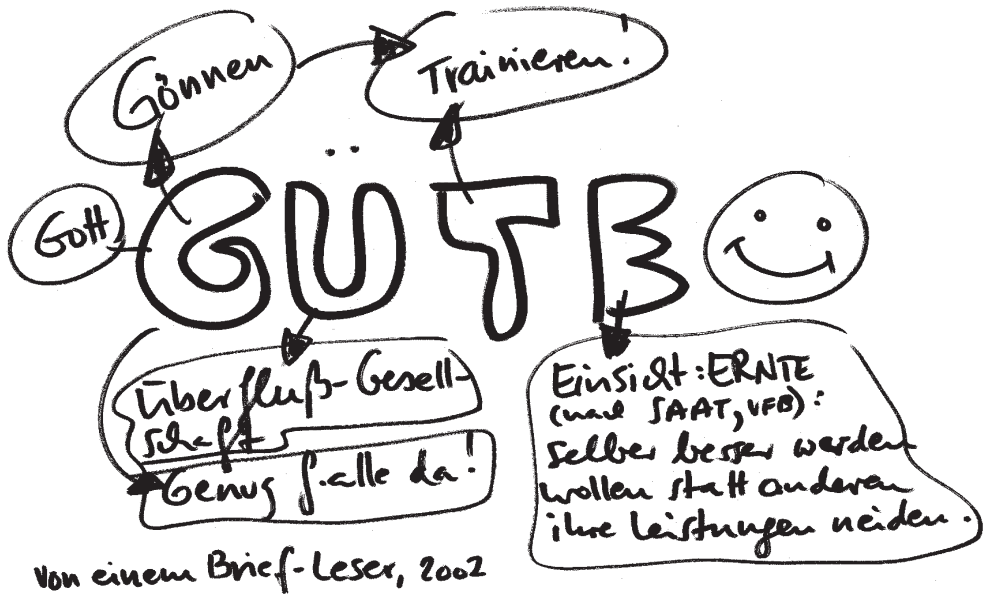 Gönnen
Trainieren!
Gott
GÜTE
Überfluß-Gesell-
schaft
Genug f. alle da!
Einsicht: ERNTE
(nach SAAT, VFB):
selber besser werden
wollen statt anderen
ihre Leistungen neiden.
von einem Brief-Leser, 2002